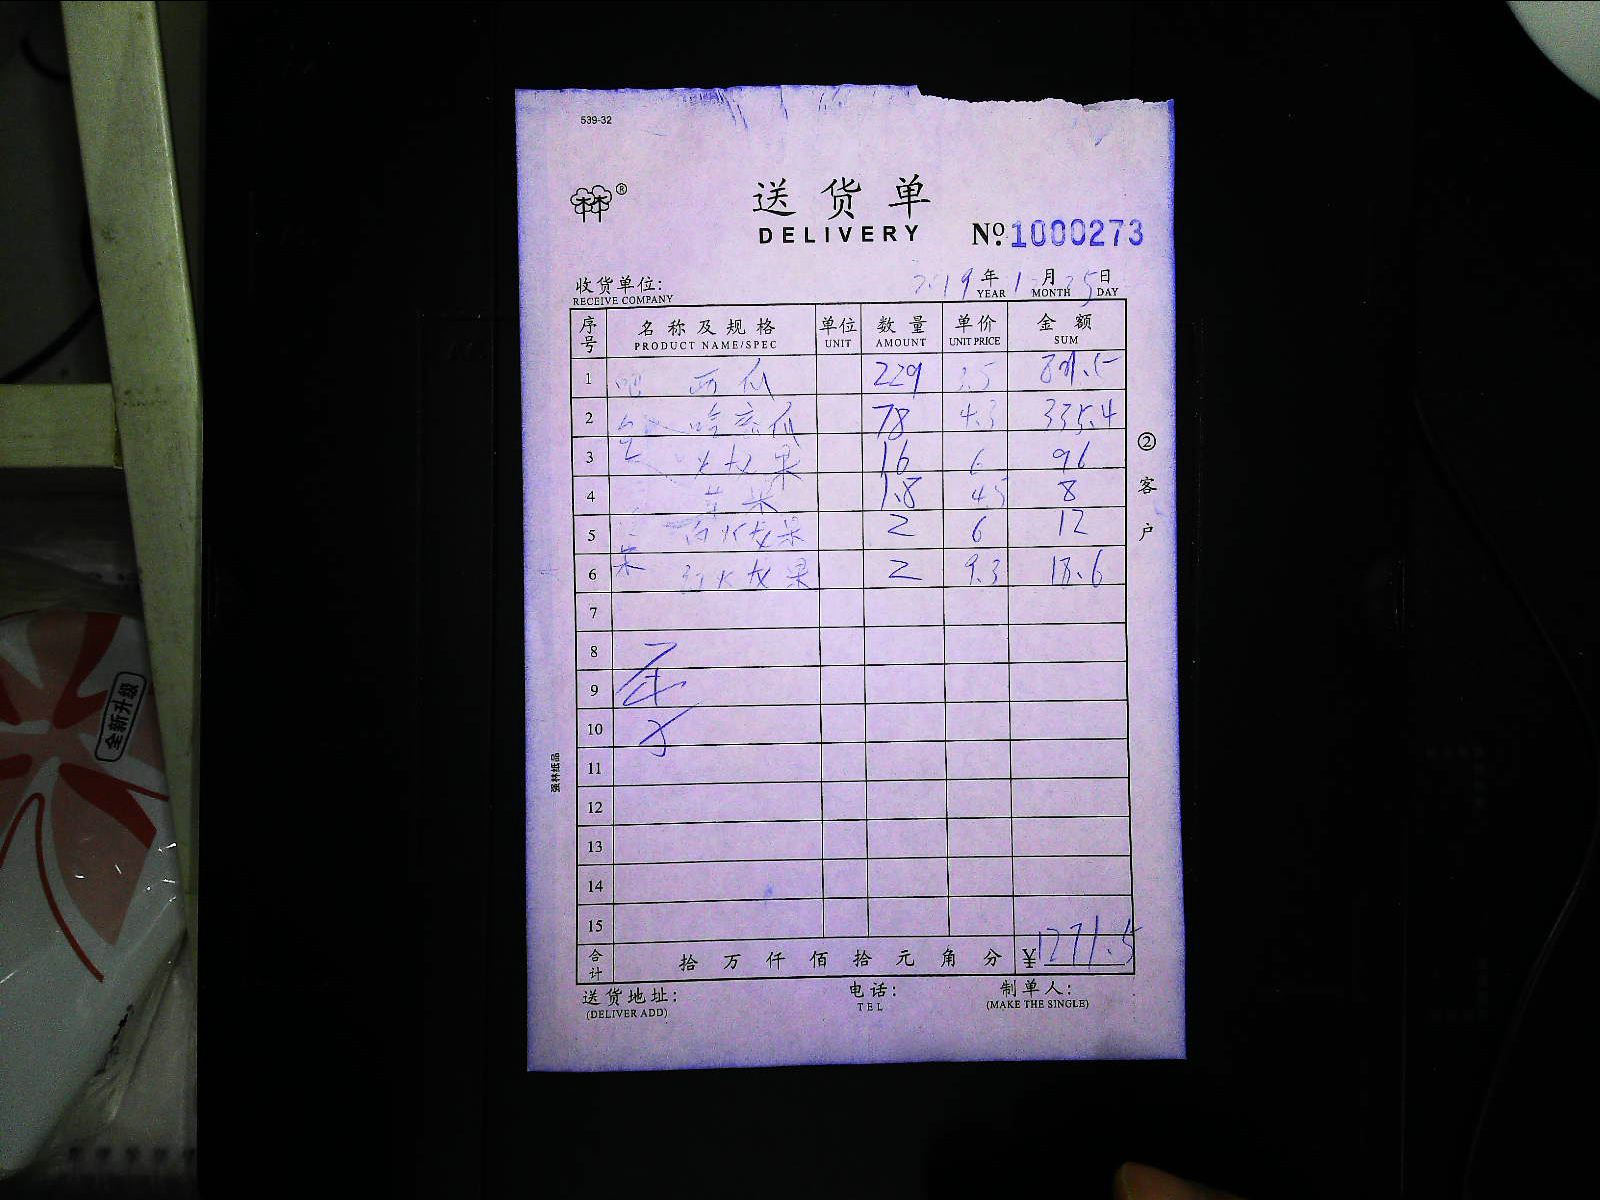 539-32
林®
送货单
DELIVERY
No. 1000273
收货单位: 2019年1月25日
RECEIVE COMPANY YEAR MONTH DAY
序号 名称及规格 单位 数量 单价 金额
PRODUCT NAME/SPEC UNIT AMOUNT UNIT PRICE SUM
1 西瓜 229 3.5 801.5
2 哈密瓜 78 4.3 335.4
3 火龙果 16 6 96
4 1.8 4.5 8
5 白火龙果 2 6 12
6 红火龙果 2 9.3 18.6
7
8
9
10
11
12
13
14
15
合计 拾万仟佰拾元角分 ¥1271.5
送货地址: 电话: 制单人:
(DELIVER ADD) TEL (MAKE THE SINGLE)
②客户
强林纸品
全新升级